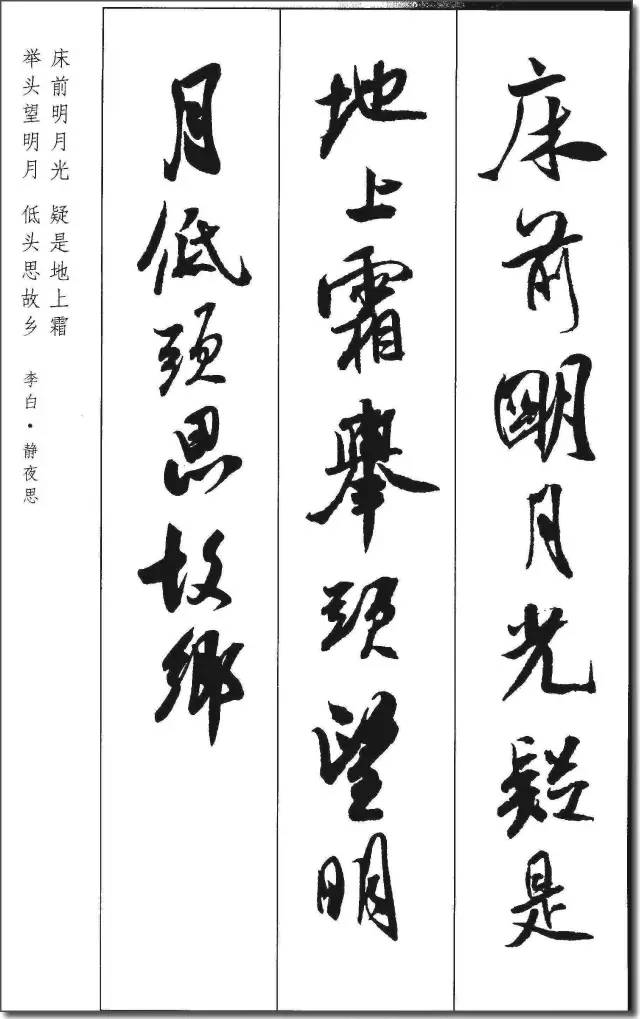 床前明月光疑是
地上霜舉頭望明
月低頭思故鄉
床前明月光 疑是地上霜
举头望明月 低头思故乡 李白·静夜思